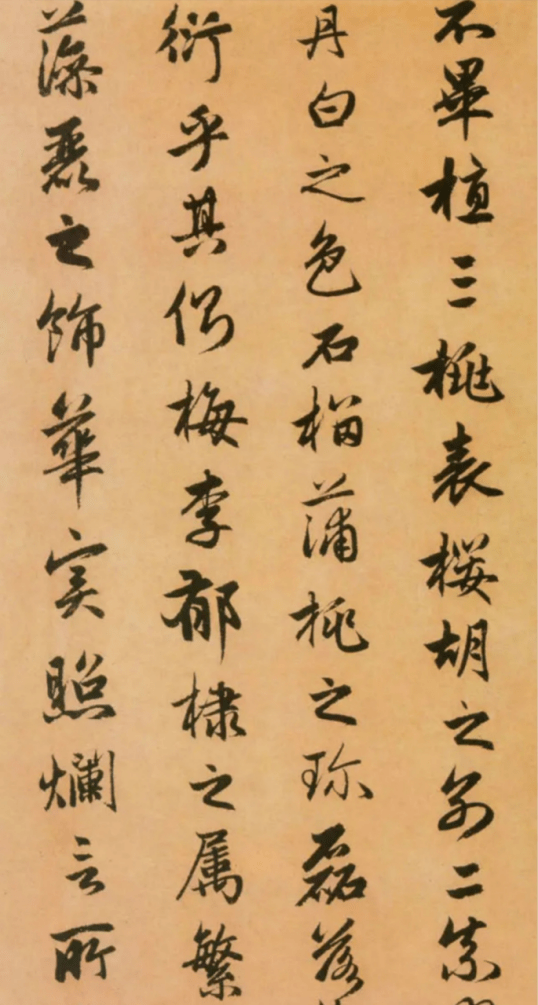 不畢植三桃表櫻胡之別二柰
丹白之色石榴蒲桃之珎磊落
衍乎其側梅李郁棣之属繁
藻麗之飾華実照爛言所